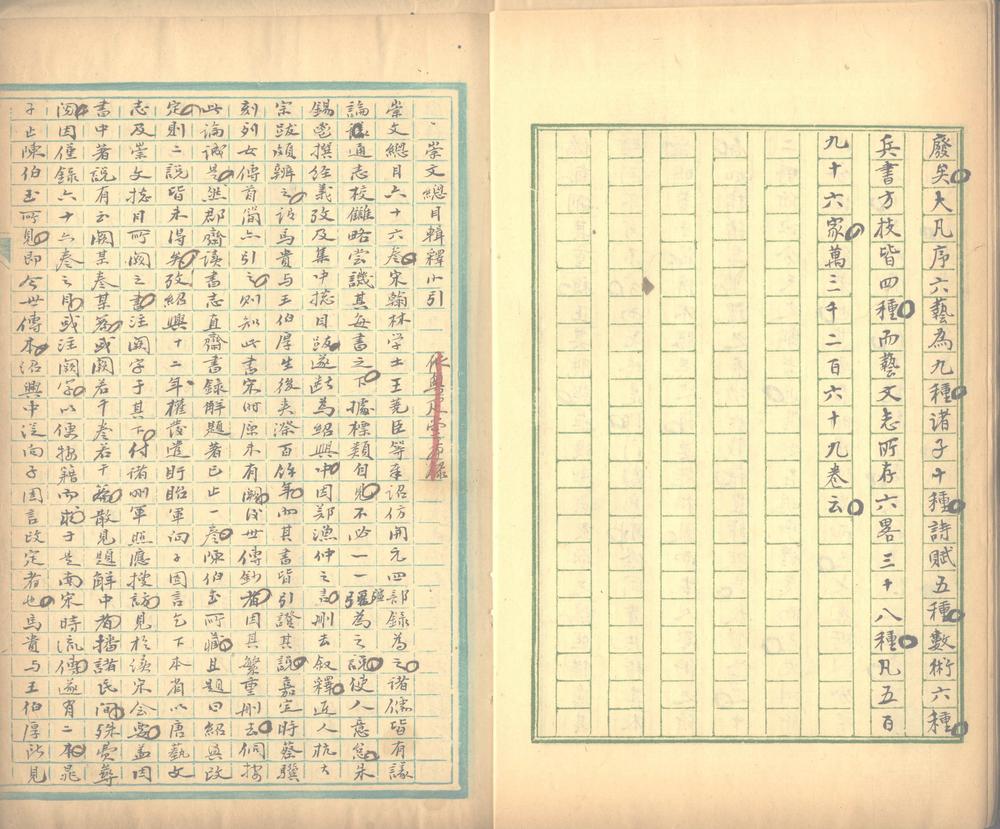 廢矣大凡序六藝為九種諸子十種詩賦五種數術六種
兵書方技皆四種而藝文志所存六畧三十八種凡五百
九十六家萬三千二百六十九卷云
崇文總目輯釋小引
崇文總目六十六卷宋翰林学士王堯臣等奉詔仿開元四部錄為之諸儒皆有議
論通志校讎略嘗譏其每書之下據標類自見不必一一彊為之說使人意怠朱
錫鬯撰經義攷及集中捴目跋遂斷為紹興中因鄭漁仲之言刪去叙釋近人杭大
宗跋頗辨之謂馬貴与王伯厚生後夾漈百餘年而其書皆引證其說嘉定時蔡驥
刻列女傳首簡亦引之則知此書宋時原未有闕後世傳鈔者因其繁重刪去何按
此論誠是然郡齋讀書志直齋書録解題著已止一卷陳伯玉所藏且題曰紹興改
定則二說皆未得矣攷紹興十二年權發遣盱眙軍向子固言乞下本省以唐藝文
志及崇文捴目所闕之書注闕字于其下付诸州軍照應搜訪見於續宋会要蓋因
書中著說有云闕某卷某篇或闕若千卷若干篇散見題解中者播諸民間殊費尋
閱因僅録六十六卷之目或注闕字以便按籍而求于是南宋時流傳遂有二本晁
子止陳伯玉所見即今世傳本紹興中從向子固言改定者也馬貴与王伯厚所見